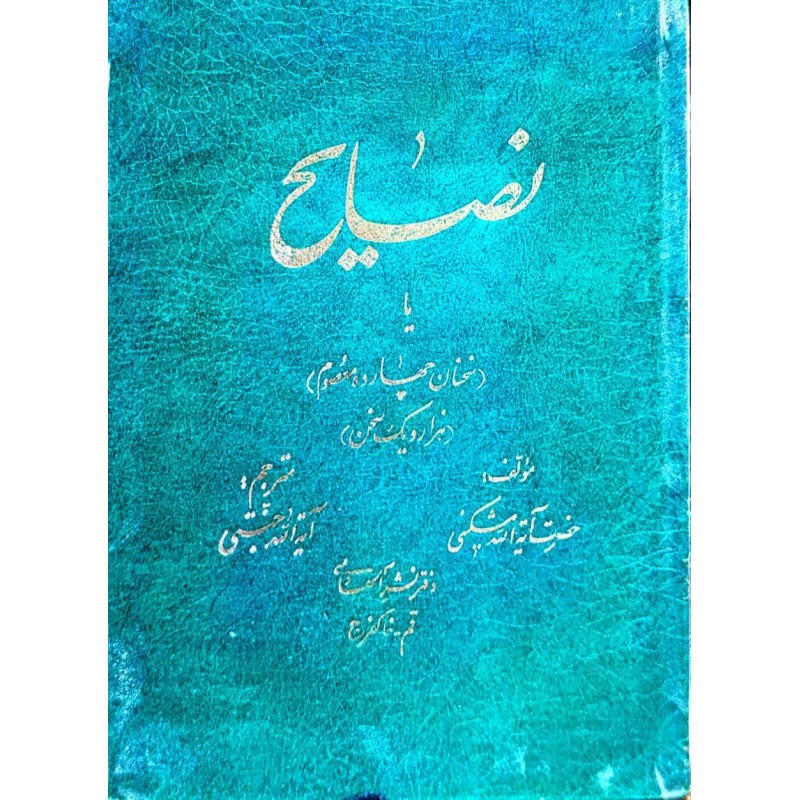 نصایح
یا
(سخنان چهارده معصوم)
(هزار و یک سخن)
مؤلف:
حضرت آیة الله مشکینی
مترجم:
آیة الله جنتی
دفتر نشر
قم - خاکفرج